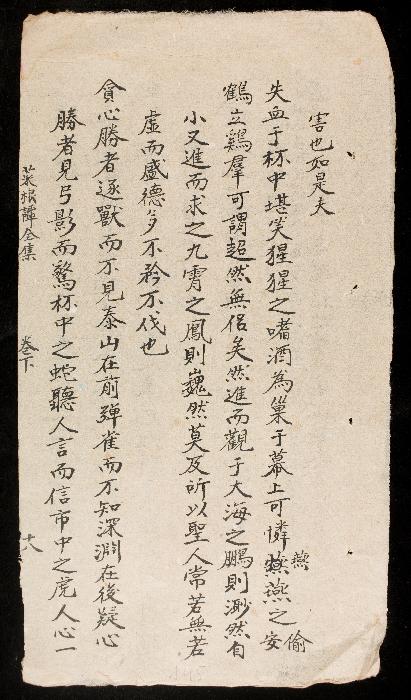 害也如是夫
失血于杯中堪笑猩猩之嗜酒為巢于幕上可憐燕燕之偷安
鶴立鷄羣可謂超然無侶矣然進而觀于大海之鵬則渺然自
小又進而求之九霄之鳳則巍然莫及所以聖人常若無若
虛而盛德多不矜不伐也
貪心勝者逐獸而不見泰山在前彈雀而不知深淵在後疑心
勝者見弓影而驚杯中之蛇聽人言而信市中之虎人心一
菜根譚全集 卷下 十八